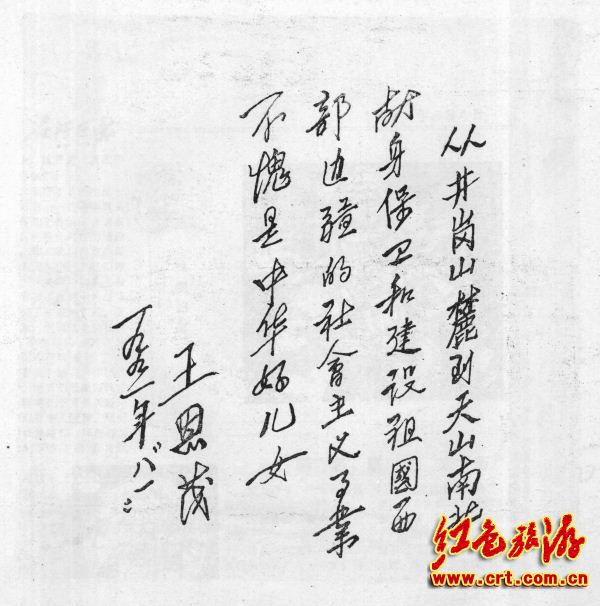 从井岗山麓到天山南北
献身保卫和建设祖國西
部边疆的社會主义事業
不愧是中华好儿女
王恩茂
一九九一年八一
红色旅游
www.crt.com.cn